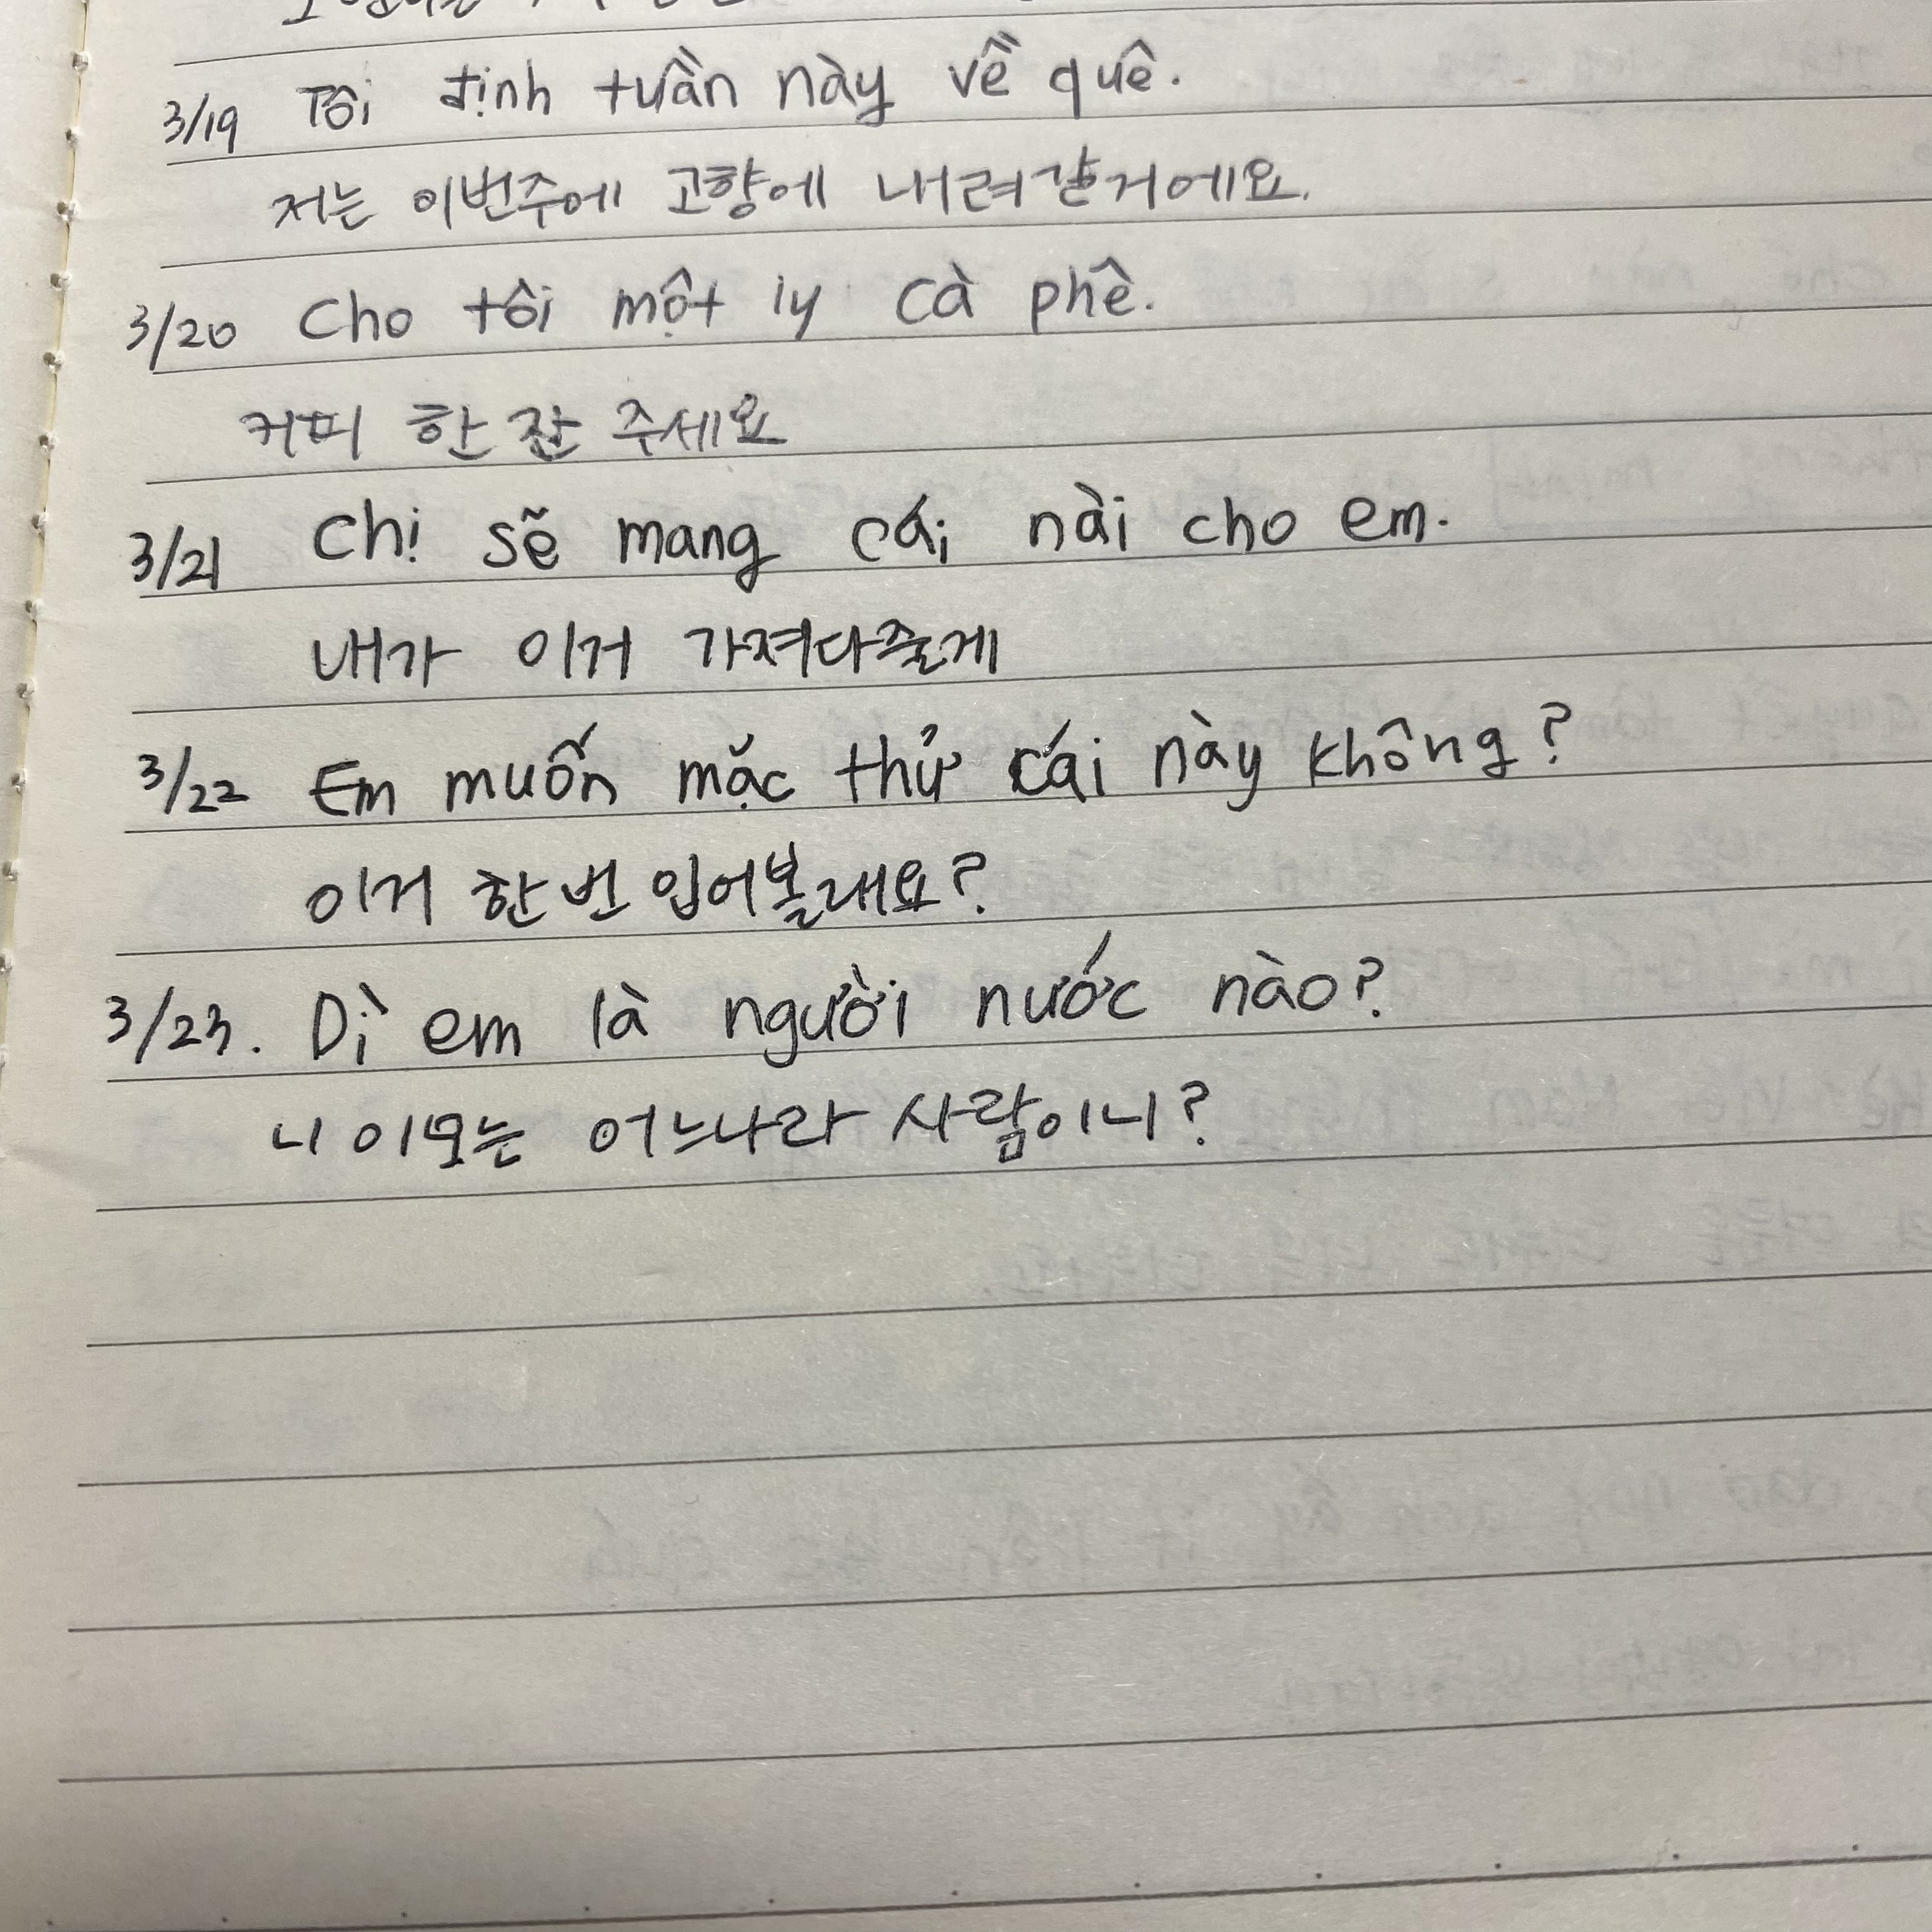 3/19 Tôi định tuần này về quê.
저는 이번주에 고향에 내려갈거에요.
3/20 Cho tôi một ly cà phê.
커피 한 잔 주세요
3/21 Chị sẽ mang cái nài cho em.
내가 이거 가져다줄게
3/22 Em muốn mặc thử cái này không?
이거 한번 입어볼래요?
3/23. Dì em là người nước nào?
니 이모는 어느나라 사람이니?